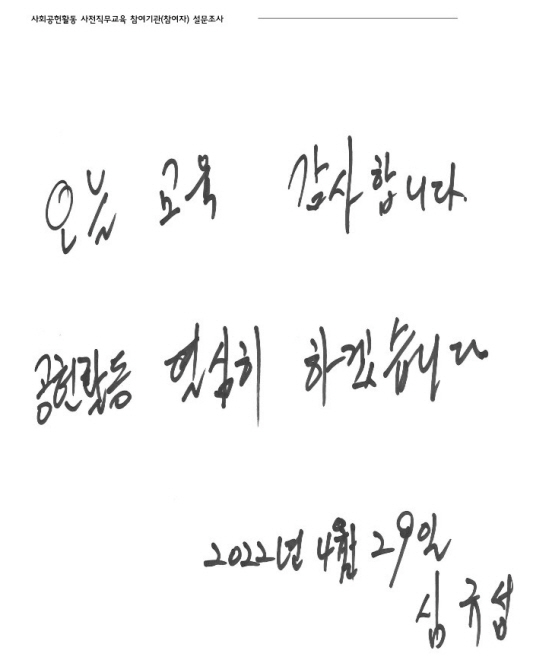 사회공헌활동 사전직무교육 참여기관(참여자) 설문조사
오늘 교육 감사합니다
공헌활동 열심히 하겠습니다
2022년 4월 29일
심규섭